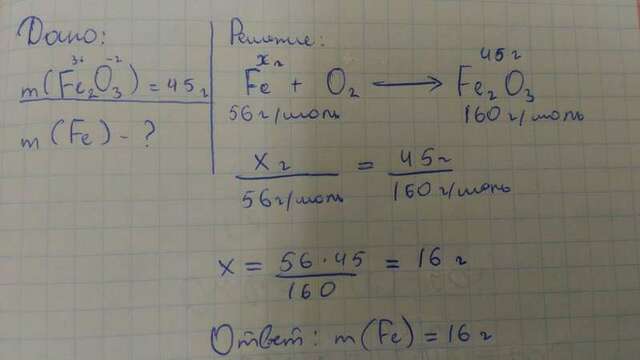 Дано:
m(Fe₂³⁺O₃⁻²) = 45 г
m(Fe) - ?
Решение:
x г 45 г
Fe + O₂ ⟶ Fe₂O₃
56 г/моль 160 г/моль
x г / 56 г/моль = 45 г / 160 г/моль
x = 56 · 45 / 160 = 16 г
Ответ: m(Fe) = 16 г